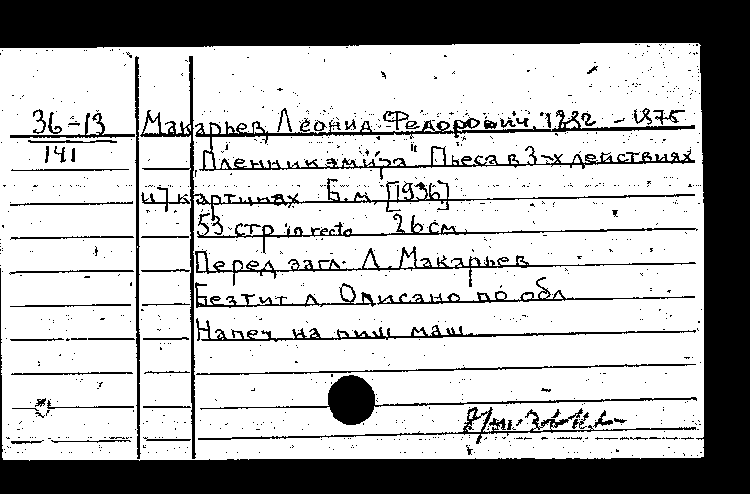 36-13 Макарьев, Леонид Федорович, 1892 - 1975
141 "Пленник мира" Пьеса в 3-х действиях
и 7 картинах Б.м. [1936]
53 стр in recto 26 см.
Перед загл. Л. Макарьев
Без тит л. Описано по обл
Напеч на пиш маш.